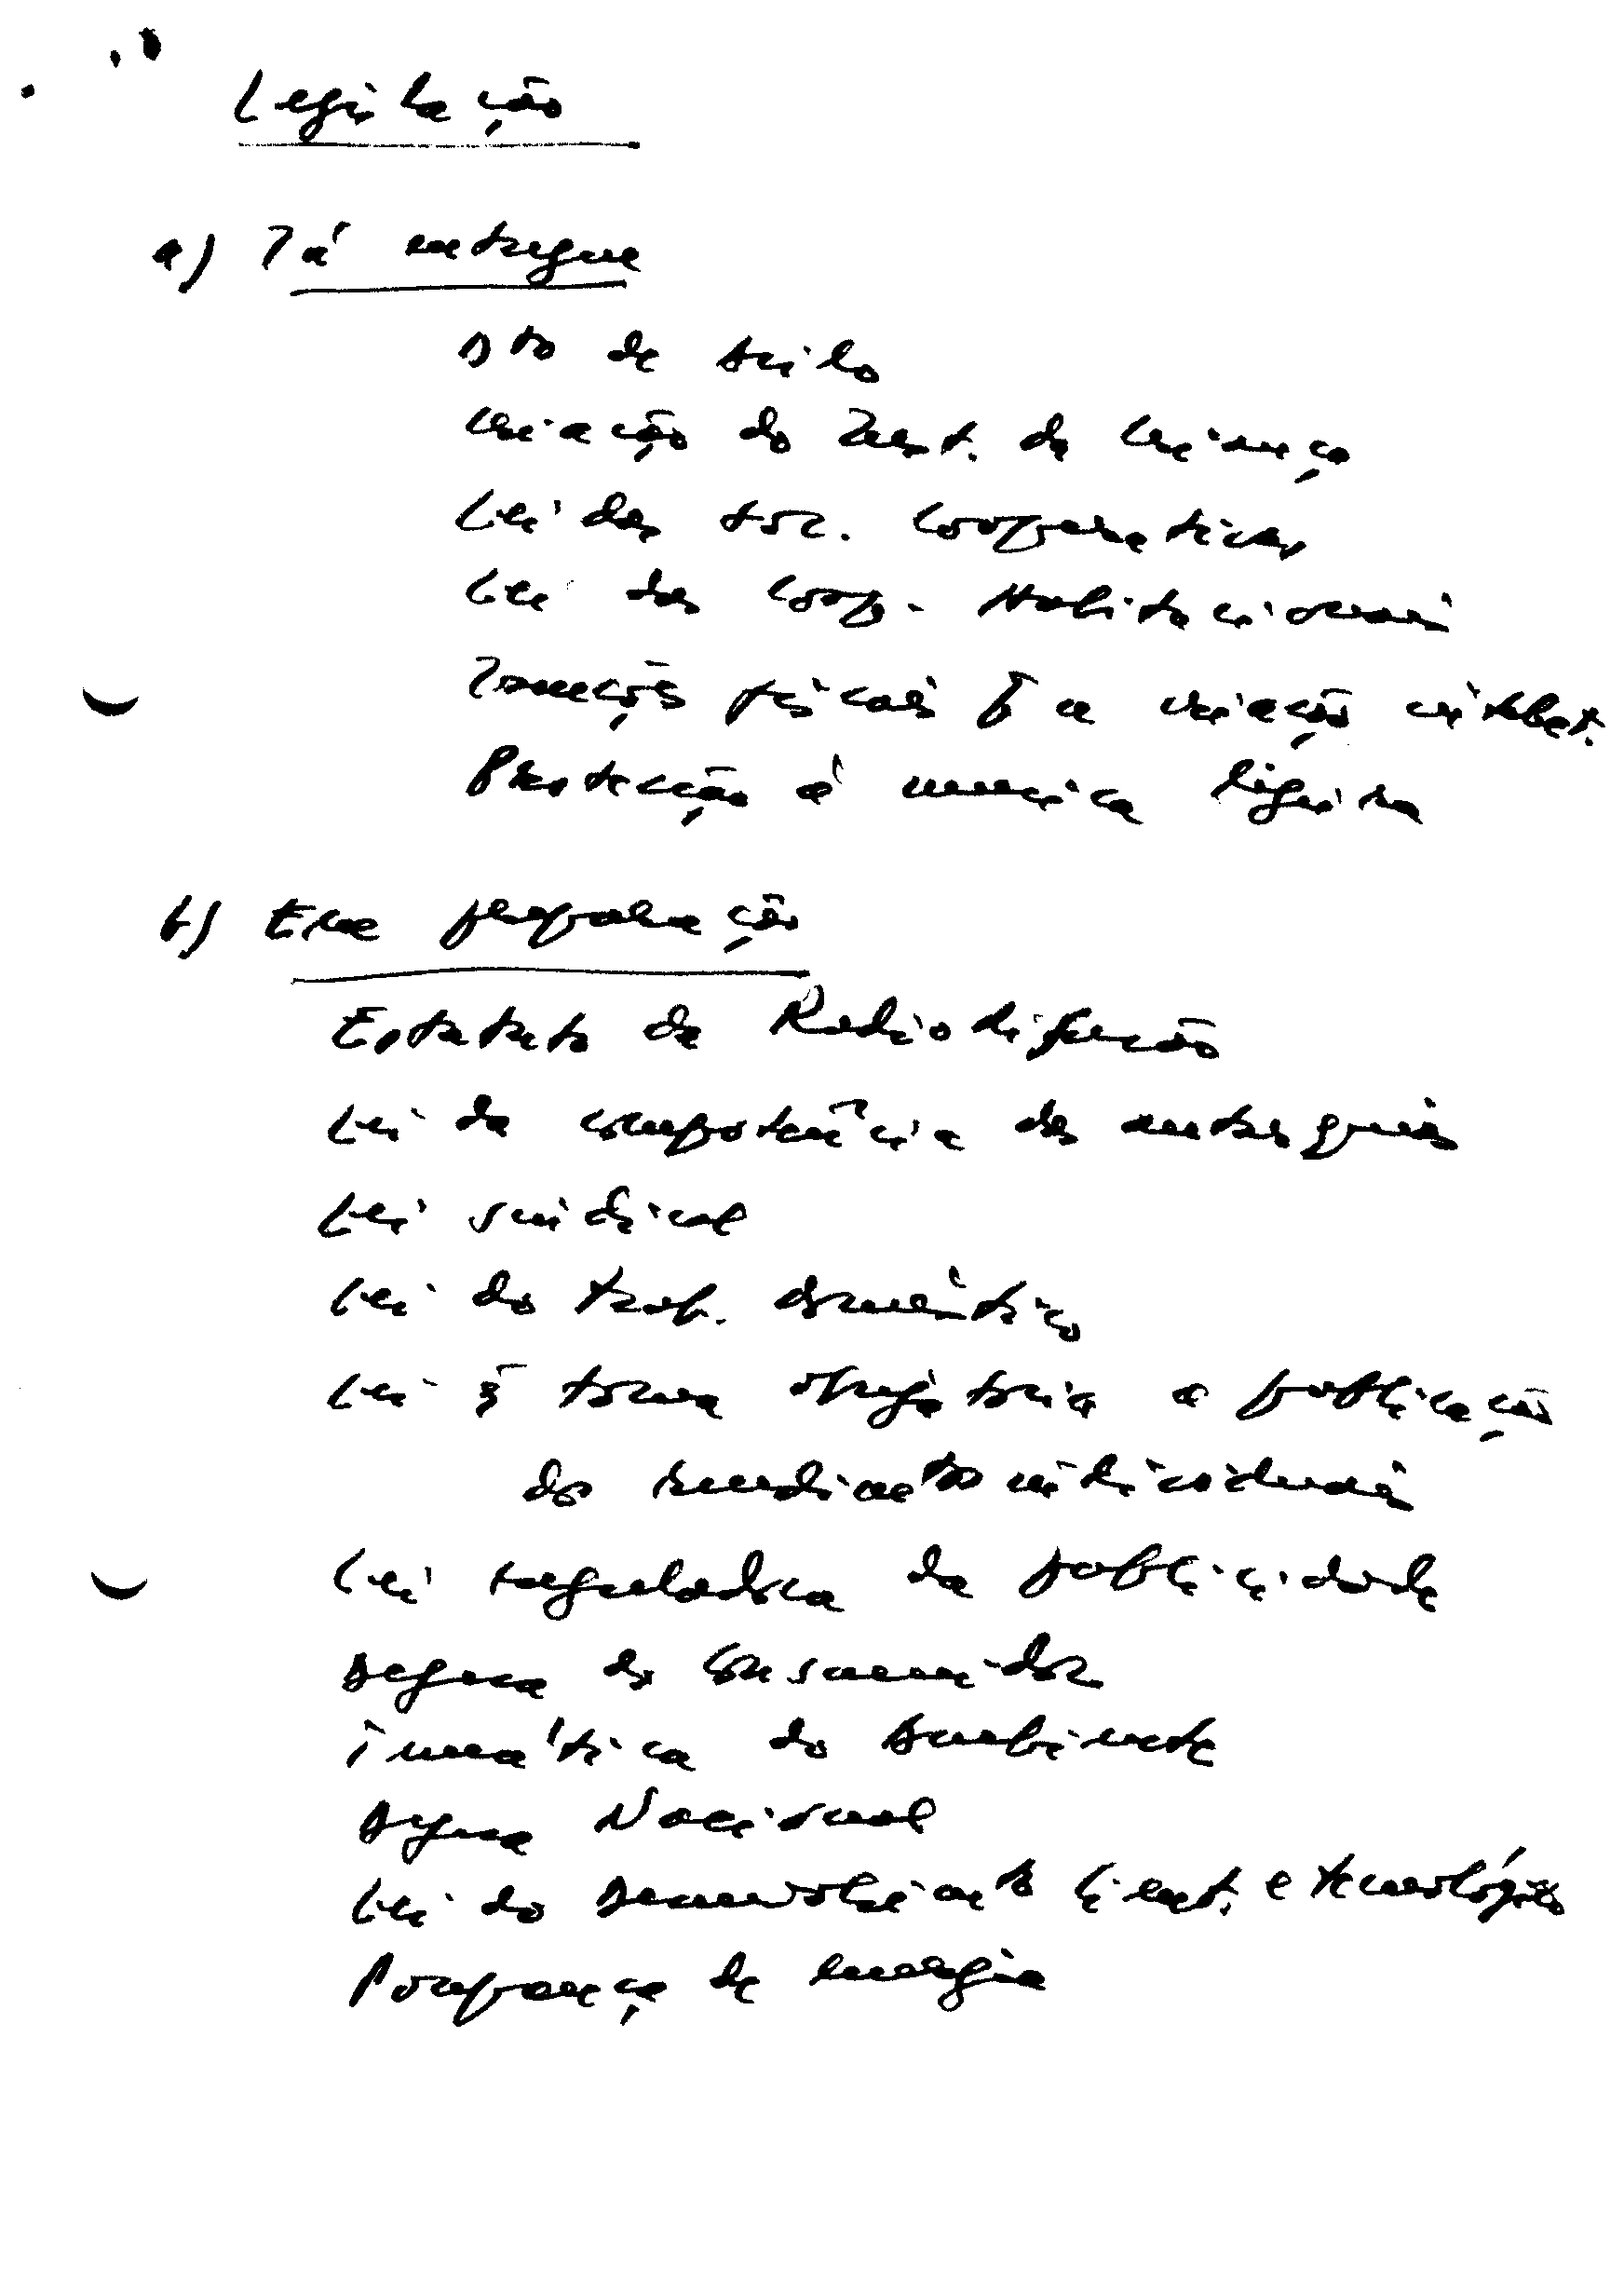 Legislação
a) Já entregue
Dto de Asilo
Criação do Inst. da Criança
Lei das soc. Cooperativas
Lei das Coop. Habitacionais
Isenções fiscais p a criação intelect.
Protecção à música ligeira
b) Em preparação
Estatuto da Radiodifusão
Lei da competência das autarquias
Lei sindical
Lei do trab. doméstico
Lei q torna obrigatória a publicação
do rendimento individuais
Lei reguladora da publicidade
Defesa do Consumidor
Temática do Ambiente
Defesa Nacional
Lei do Desenvolvimento Cient. e tecnológico
Poupança de energia